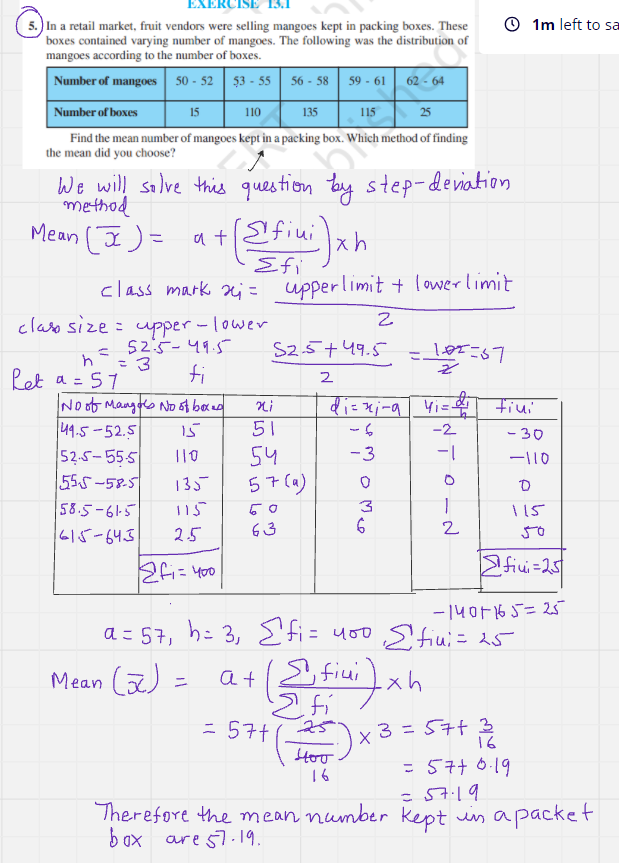 EXERCISE 13.1
1m left to sa
5. In a retail market, fruit vendors were selling mangoes kept in packing boxes. These
boxes contained varying number of mangoes. The following was the distribution of
mangoes according to the number of boxes.
Number of mangoes 50 - 52 53 - 55 56 - 58 59 - 61 62 - 64
Number of boxes 15 110 135 115 25
Find the mean number of mangoes kept in a packing box. Which method of finding
the mean did you choose?
We will solve this question by step-deviation
method
Mean (x̄) = a + (Σfiui / Σfi) × h
class mark xi = upper limit + lower limit / 2
class size = upper - lower
h = 52.5 - 49.5
= 3
52.5 + 49.5 / 2 = 102 / 2 = 57
Let a = 57
fi
No of Mangoes No of boxes xi di = xi - a ui = di/h fiui
49.5 - 52.5 15 51 -6 -2 -30
52.5 - 55.5 110 54 -3 -1 -110
55.5 - 58.5 135 57 (a) 0 0 0
58.5 - 61.5 115 60 3 1 115
61.5 - 64.5 25 63 6 2 50
Σfi = 400 Σfiui = 25
-140+165 = 25
a = 57, h = 3, Σfi = 400 Σfiui = 25
Mean (x̄) = a + (Σfiui / Σfi) × h
= 57 + (25 / 400) × 3 = 57 + 3/16
16
= 57 + 0.19
= 57.19
Therefore the mean number kept in a packet
box are 57.19.